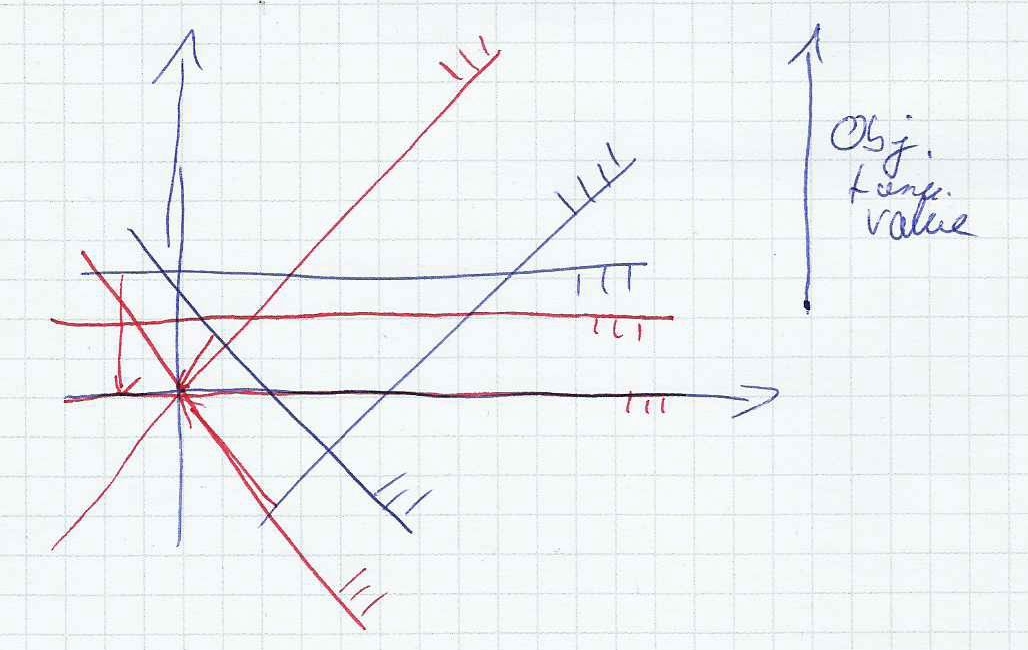 Obj.
func.
value